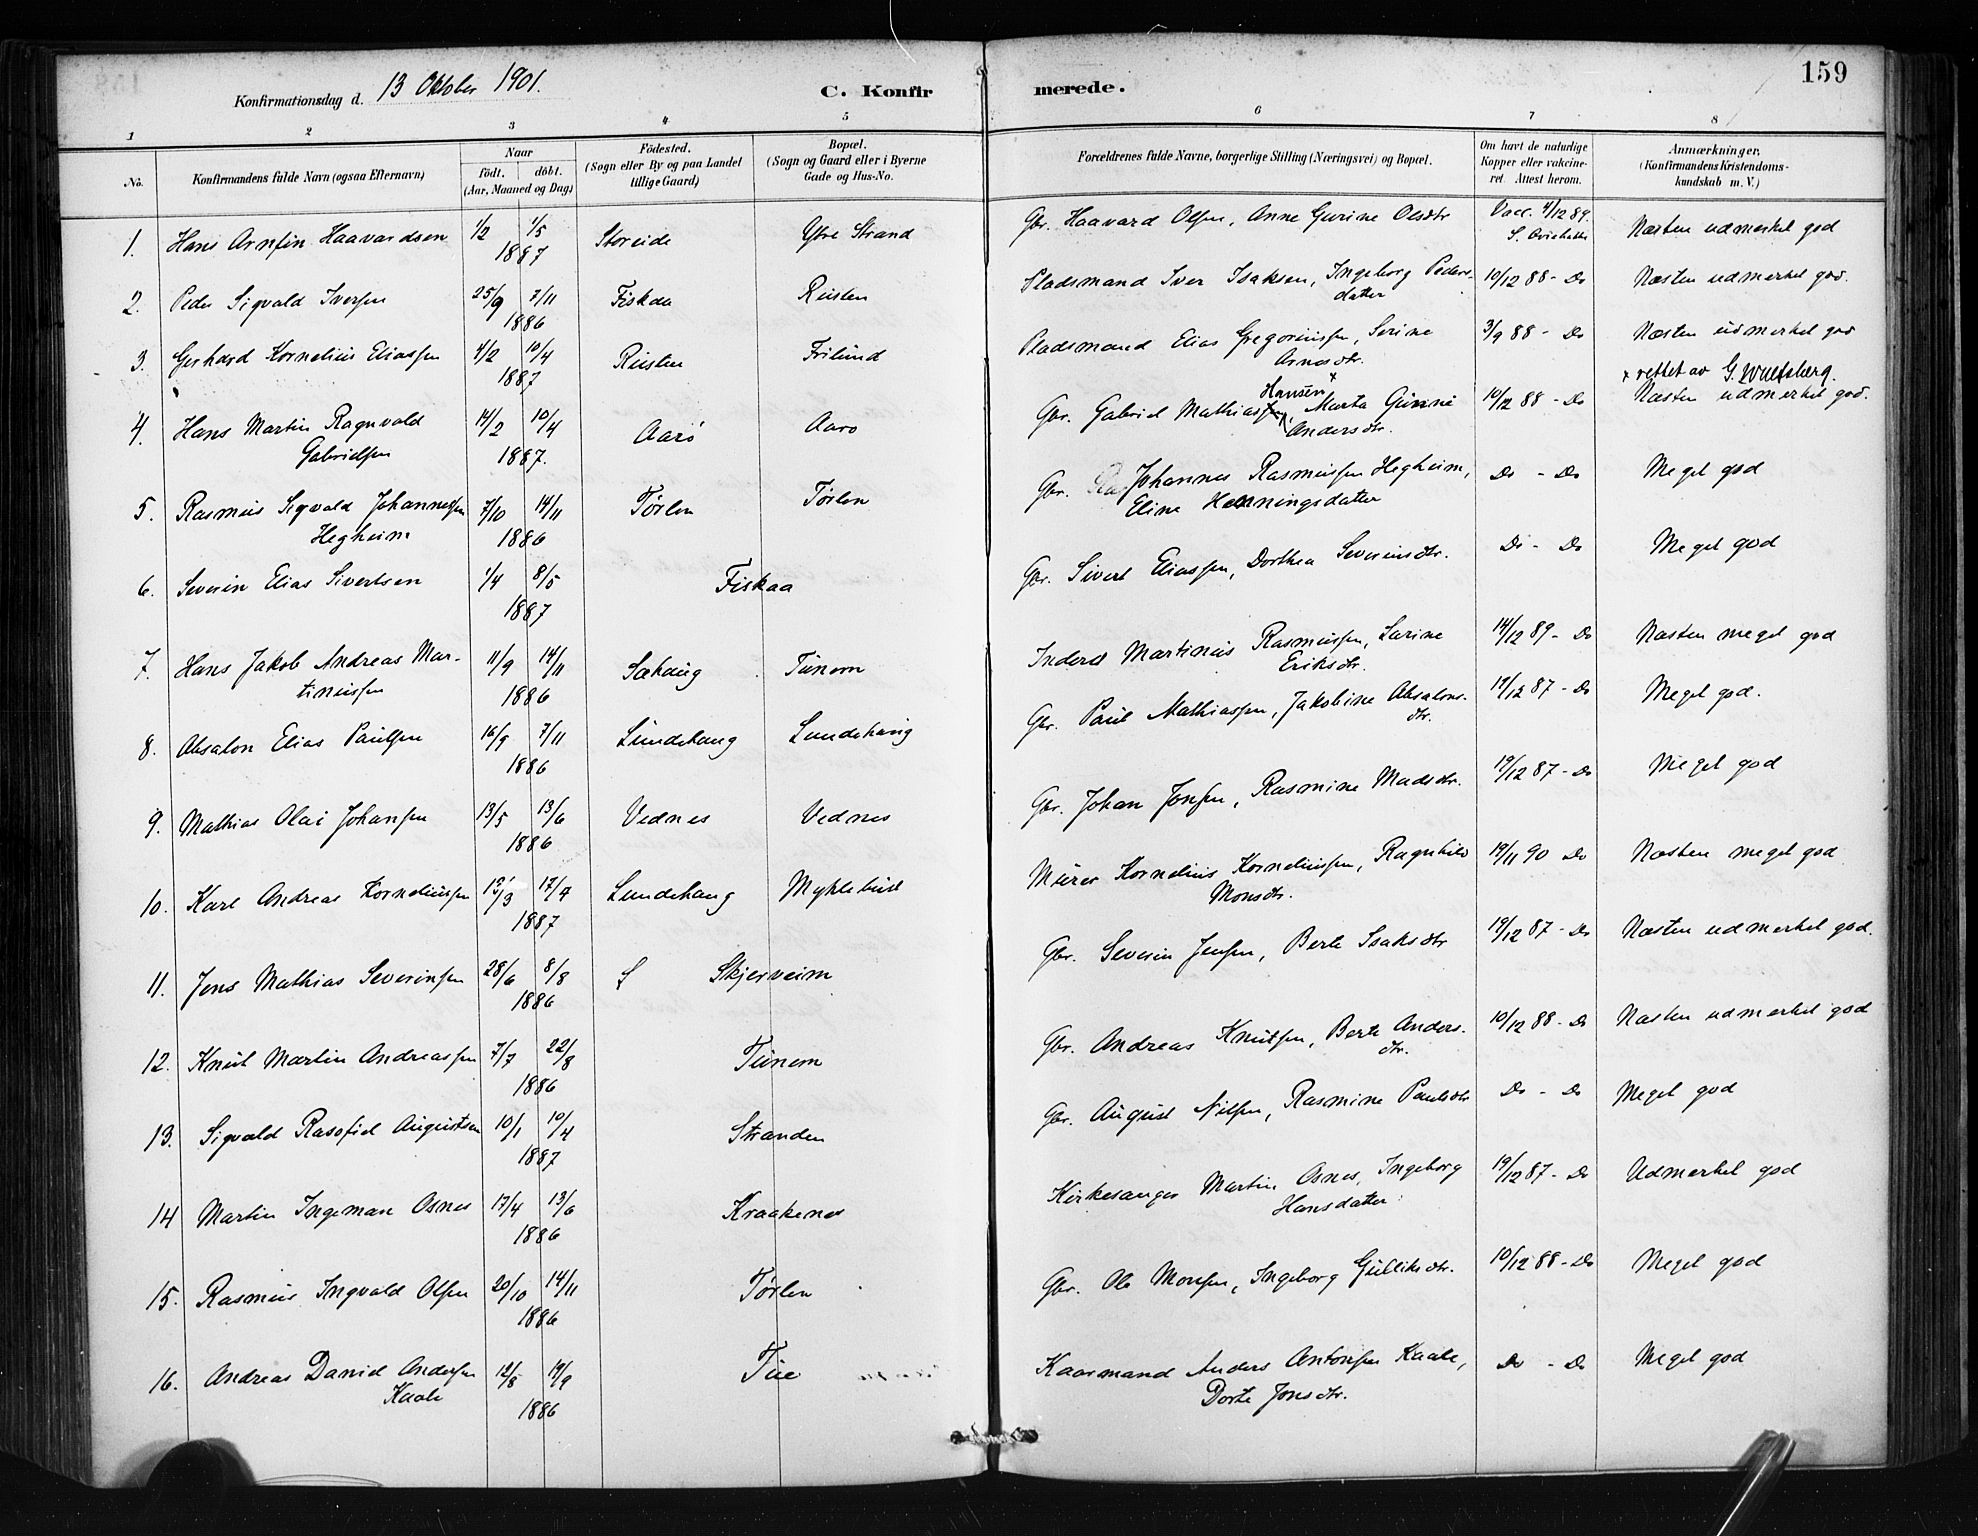 159
Konfirmationsdag d. 13 Oktober 1901.
C. Konfirmerede.
1 2 3 4 5 6 7 8
No. Konfirmandens fulde Navn (ogsaa Efternavn) Naar födt. döbt. (Aar, Maaned og Dag) Födested. (Sogn eller By og paa Landet tillige Gaard) Bopæl. (Sogn og Gaard eller i Byerne Gade og Hus-No. Forældrenes fulde Navne, borgerlige Stilling (Næringsvei) og Bopæl. Om havt de naturlige Kopper eller vakcineret. Attest herom. Anmærkninger, (Konfirmandens Kristendomskundskab m. V.)
1. Hans Arnfin Haavardsen 1/2 1/5 1887 Storeide Ytre Strand Gbr. Haavard Olsen, Anne Gurine Olsdtr Vacc. 4/12 89. Næsten udmerket god
2. Peder Sigvald Iversen 25/9 7/11 1886 Fiskaa Reisten Pladsmand Iver Isaksen, Ingeborg Pedersdatter 10/12 88 - Do Næsten udmerket god.
3. Gerhard Kornelius Eliassen 4/2 10/4 1887 Reisten Frilund Pladsmand Elias Gregoriussen, Serine Arnesdtr. 3/9 88 - Do Næsten udmerket god
x rettet av G. Wulfsberg.
4. Hans Martin Ragnvald Gabrielsen 14/2 10/4 1887. Aarö Aarö Gbr. Gabriel Mathiassen Hansen x, Marta Gunni Andersdtr. 10/12 88 - Do Næsten udmerket god.
5. Rasmus Sigvald Johannessen Hegheim 7/10 14/11 1886 Tørlen Tørlen Gbr. Johannes Rasmussen Hegheim, Eline Henningsdatter Do - Do Meget god
6. Severin Elias Sivertsen 1/4 8/5 1887 Fiskaa Gbr. Sivert Eliassen, Dorthea Severinsdtr. Do - Do Meget god
7. Hans Jakob Andreas Martinussen 11/9 14/11 1886 Sæhaug Tunem Inderst Martinus Rasmussen, Sarine Eriksdtr. 14/12 89 - Do Næsten meget god
8. Absalon Elias Paulsen 16/9 7/11 1886 Lundehaug Lundehaug Gbr. Paul Mathiassen, Jakobine Absalonsdtr. 19/12 87 - Do Meget god.
9. Mathias Olai Johansen 13/5 13/6 1886 Vednes Vednes Gbr. Johan Jensen, Rasmine Madsdtr. 19/12 87 - Do Meget god
10. Karl Andreas Korneliussen 17/4 1887 Lundehaug Myklebust Murer Kornelius Korneliussen, Ragnhild Monsdtr. 19/11 90 Do Næsten meget god
11. Jens Mathias Severinsen 28/6 8/8 1886 S Skjerveim Gbr. Severin Jensen, Berte Isaksdtr 19/12 87 - Do Næsten udmerket god.
12. Knut Martin Andreassen 7/7 22/8 1886 Tunem Gbr. Andreas Knutsen, Berte Andersdtr. 10/12 88 - Do Næsten udmerket god
13. Sigvald Rasofiel Augustsen 10/1 10/4 1887 Stranden Gbr. August Nilsen, Rasmine Paulsdtr Do - Do Meget god
14 Martin Ingeman Osnes 17/4 13/6 1886 Kraakenes Kirkesanger Martin Osnes, Ingeborg Hansdatter 19/12 87 - Do Udmerket god
15. Rasmus Ingvald Olsen 20/10 14/11 1886 Tørlen Gbr. Ole Monsen, Ingeborg Gulliksdtr. 10/12 88 - Do Meget god
16. Andreas David Andersen Kaale 12/8 19/9 1886 Tue Kaarmand Anders Antonsen Kaale, Dorte Jonsdtr. Do - Do Meget god